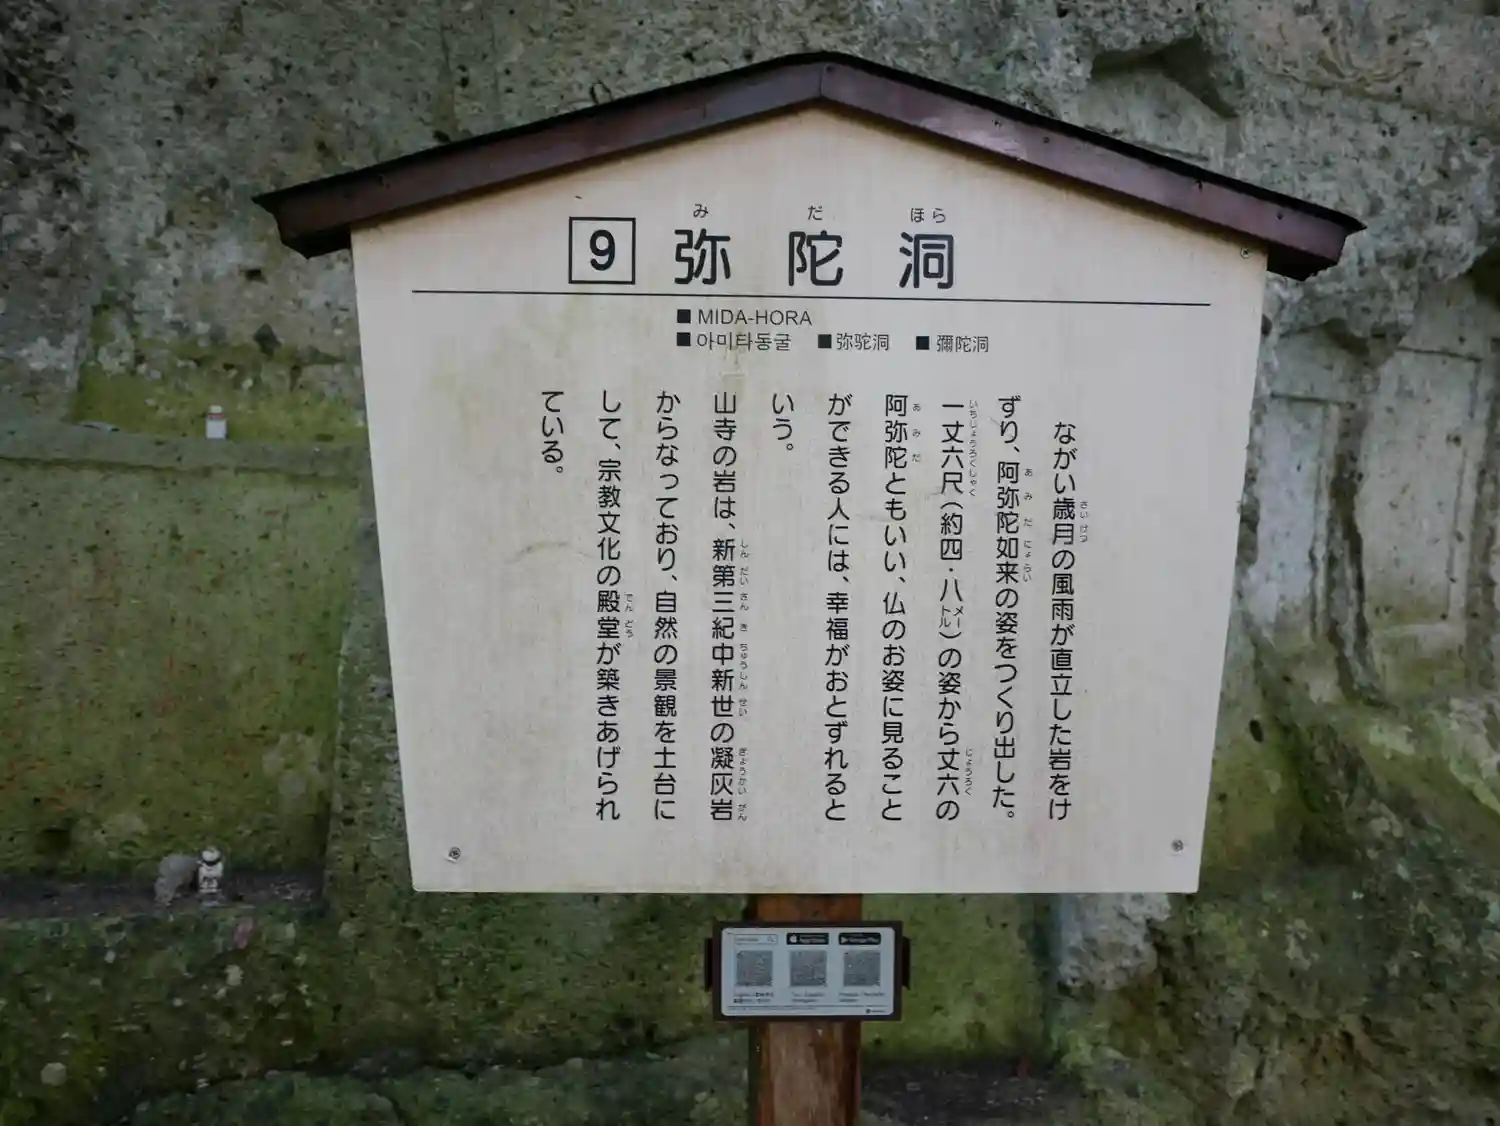 9 弥陀洞
み だ ほら
■ MIDA-HORA
■ 아미타동굴 ■ 弥驼洞 ■ 彌陀洞
ながい歳月の風雨が直立した岩をけ
ずり、阿弥陀如来の姿をつくり出した。
一丈六尺（約四・八メートル）の姿から丈六の
阿弥陀ともいい、仏のお姿に見ること
ができる人には、幸福がおとずれると
いう。
山寺の岩は、新第三紀中新世の凝灰岩
からなっており、自然の景観を土台に
して、宗教文化の殿堂が築きあげられ
ている。